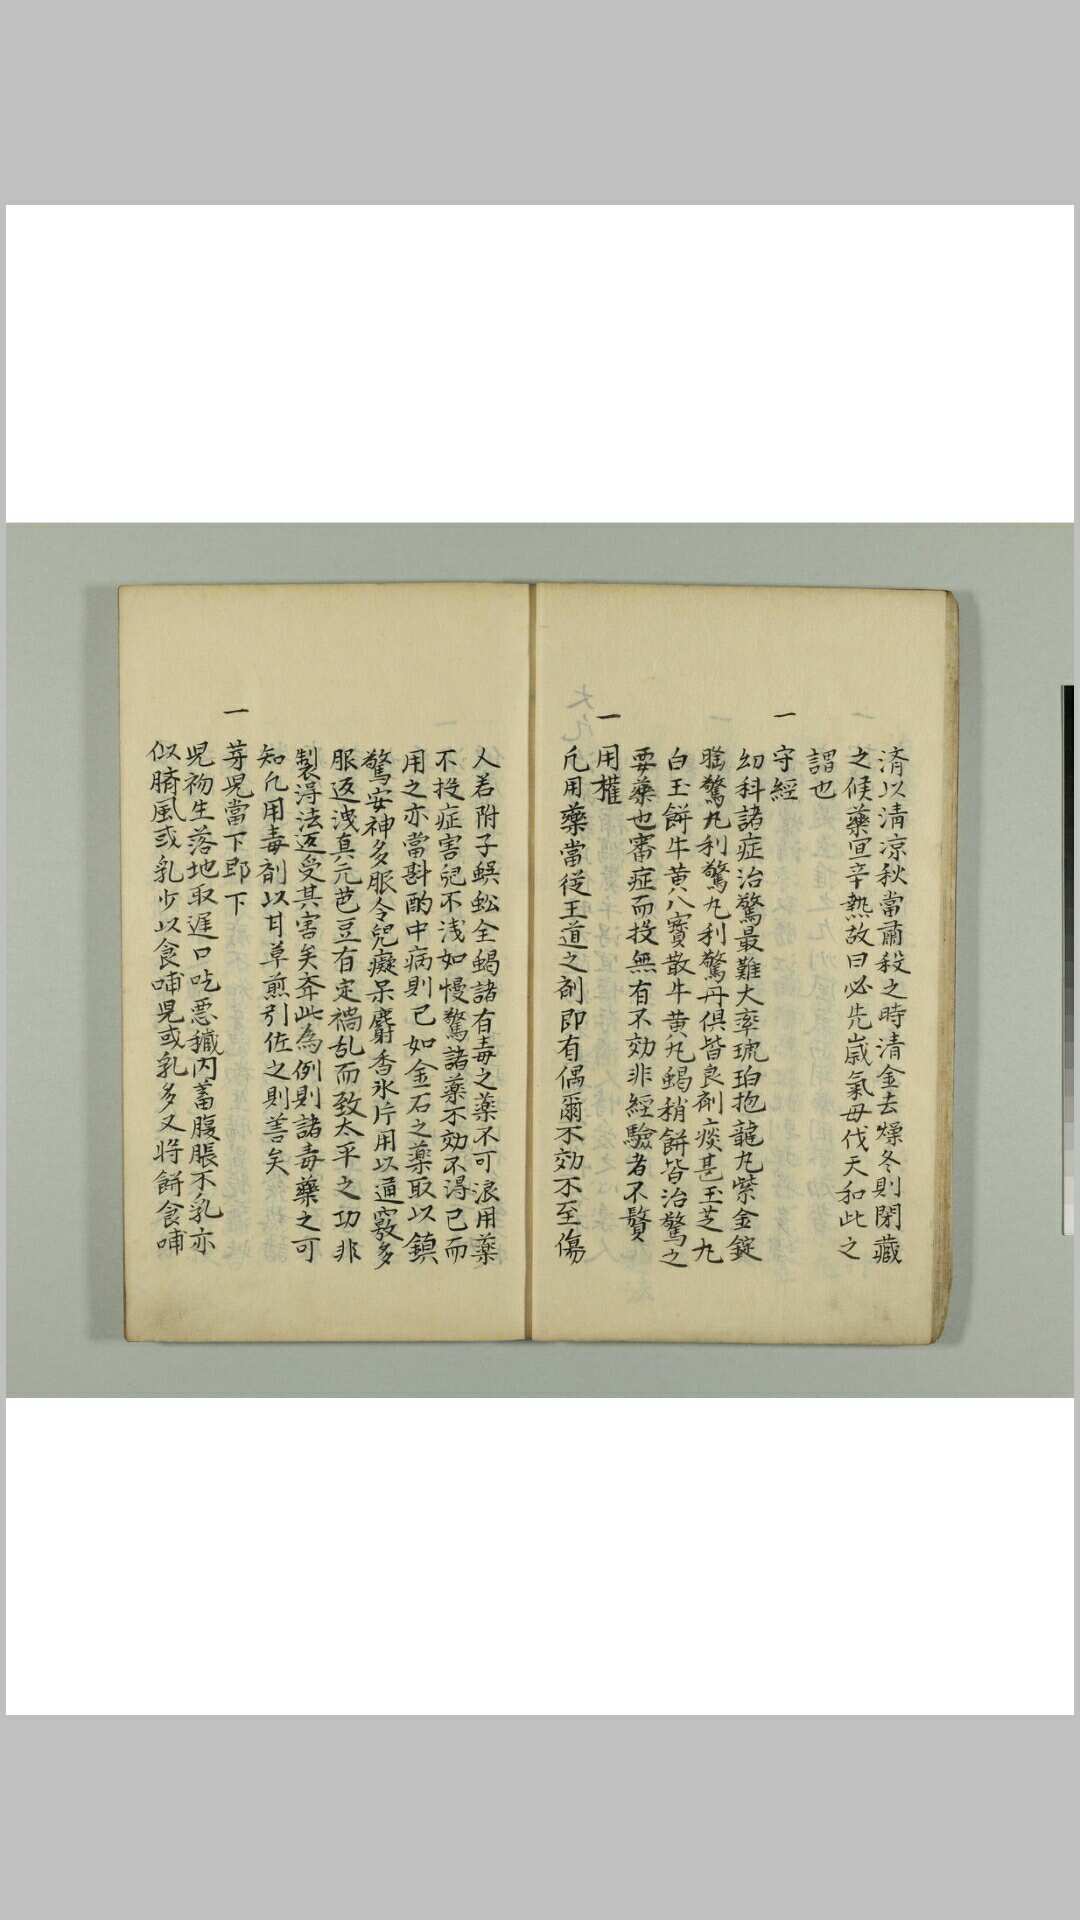 済以清凉秋當肅殺之時清金去燥冬則閉藏
之候藥宜辛熱故曰必先歳氣毋伐天和此之
謂也
一
守經
幼科諸症治驚最難大率琥珀抱龍丸紫金錠
驚丸利驚丸利驚丹倶皆良剤痰甚玉芝丸
白玉餅牛黄八寶散牛黄丸蝎稍餅皆治驚之
要藥也審症而投無有不効非經驗者不贅
一
用權
凢用藥當從王道之剤即有偶爾不効不至傷
人若附子蜈蚣全蝎諸有毒之藥不可浪用藥
不投症害兒不浅如慢驚諸藥不効不淂已而
用之亦當斟酌中病則已如金石之藥取以鎮
驚安神多服令兒癡呆麝香氷片用以通竅多
服返洩真元芭豆有定禍乱而致太平之功非
製淂法返受其害矣奔此為例則諸毒藥之可
知凢用毒剤以甘草煎引佐之則善矣
一
芽児當下即下
児初生落地取遲口吃悪穢内蓄腹脹不乳亦
似臍風或乳少以食哺児或乳多又将餅食哺